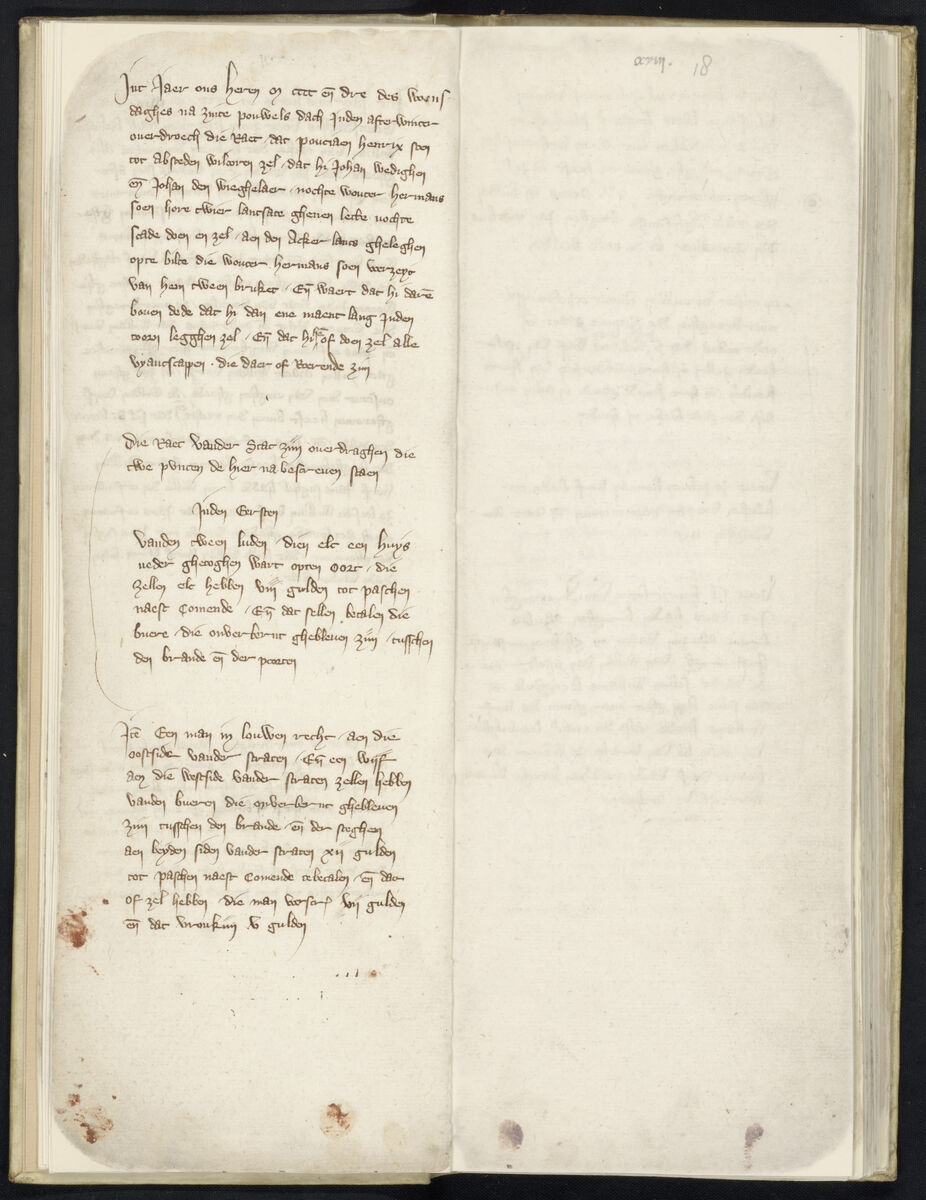 Int Jaer ons heren m cccc en̄ dre des woens
daghes na zinte pouwels dach Inden afterwinter
ouerdroech die Raet · dat ponciaen henrix soen
tot absteden wilcoren zel · dat hi Johan wedighen
en̄ Johan den wieghelaer · nochte wouter hermans
soen hore twier lantsate ghenen lecke nochte
scade doen en zel · aen den Acker lants gheleghen
opte bilte die wouter hermans soen voerzeyt
van hem tween bruket · En̄ waert dat hi daer̄
bouen dede dat hi dan ene maent lang Inden
toorn legghen zel · En̄ dat hi hē of doen zel alle
vyantscappen · die daer of Roerende zijn
Die Raet vander Stat zijn ouerdraghen die
twe punten de hier na bescreuen staen
Inden Eersten
vanden tween luden · dien elc een huys
neder ghetoghen wart opten oort · die
zellen elc hebben viij gulden tot paschen
naest Comende · En̄ dat sellen betalen die
buere · die onverbernt ghebleuen zijn · tusschen
den brande en̄ der poorten
Itē Een man in louwen recht · aen die
oostside vander straten · En̄ een wijf
aen die westside vander straten zellen hebben
vanden bueren die onverbernt ghebleuen
zijn tusschen den brande · en̄ der steghen
aen beyden siden vander straten xij gulden
tot paschen naest Comende te betalen · en̄ daer
of zel hebben · die man voerscr. vij gulden
en̄ dat vroukijn v gulden
xviij. 18